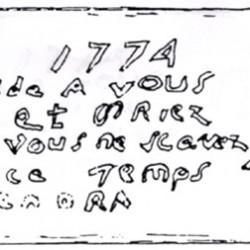 1774
de A VOUS
et PRiez
VOUS ne Scavez
ce Temps